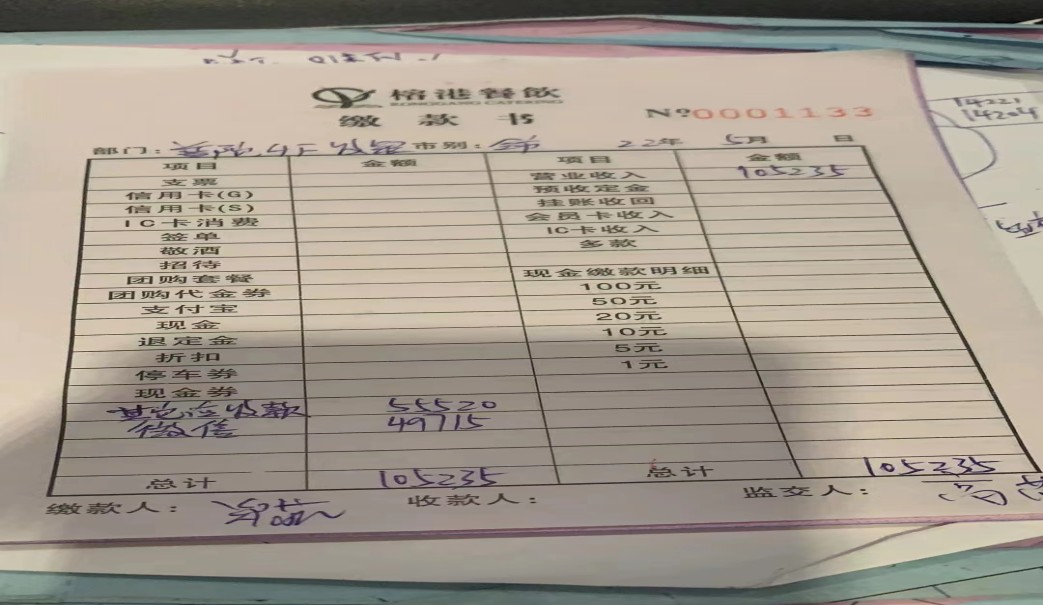 榕港餐飲
RONGGANG CATERING
缴款书
№0001133
部门： 市别： 22年 5月 日
项目 金额 项目 金额
支票 营业收入 105235
信用卡(G) 预收定金
信用卡(S) 挂账收回
IC卡消费 会员卡收入
签单 IC卡收入
敬酒 多款
招待
团购套餐 现金缴款明细
团购代金券 100元
支付宝 50元
现金 20元
退定金 10元
折扣 5元
停车券 1元
现金券
其它应收款 55520
微信 49715
总计 105235 总计 105235
缴款人： 收款人： 监交人：
14221
14204